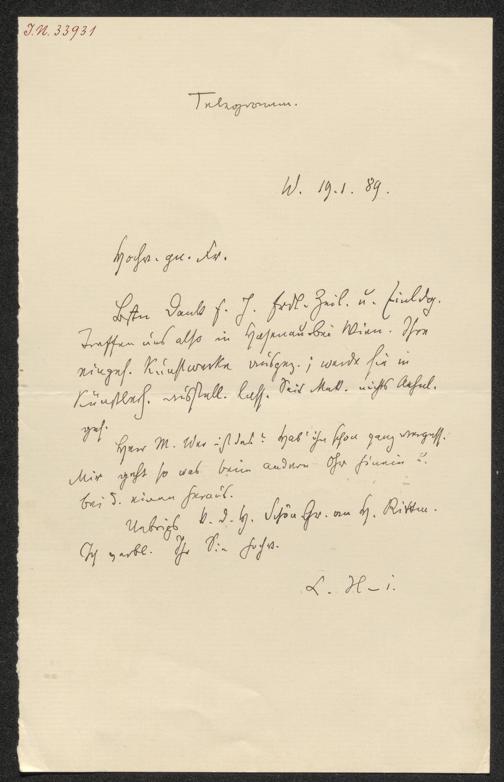 I.N. 33931
Telegramm.
W. 19.1.89.
Hochv. gn. Fr.
Bstn Dank f. J. frdl. Zeil. u. Einldg.
Treffen uns also in Hasenau bei Wien. Ihre
einges. Kunstwerke ausgez.; werde sie in
Künstlerh. ausstell. lass. Seit Mak. nichts Aehnl.
ges.
Herr M. Wer ist das? Hab' ihn schon ganz vergess.
Mir geht so was beim andern Ohr hinein u.
bei d. einen heraus.
Uebrigs k. d. H. Schön Gr. an H. Rittm.
Ich verbl. Ihr Sie hochv.
L. H-i.